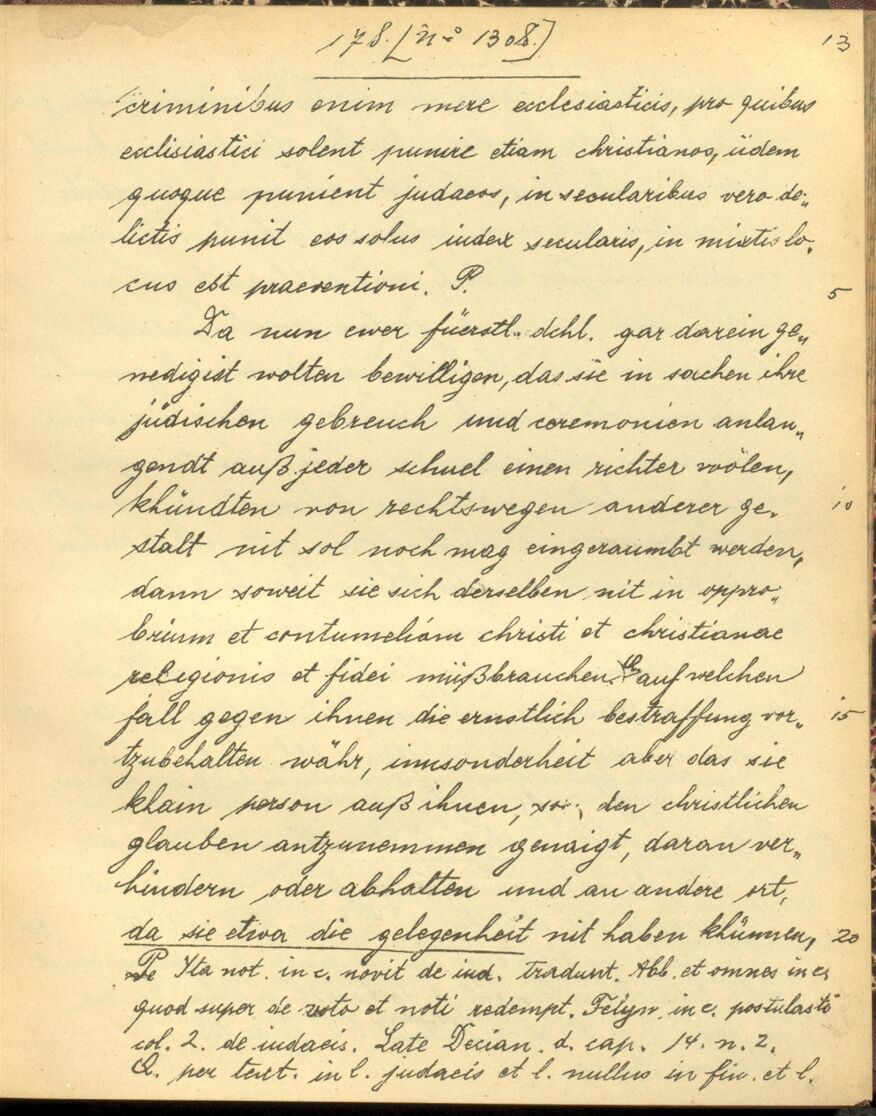 178. [n° 1308.]
13
criminibus enim mere ecclesiasticis, pro quibus
ecclisiastici solent punire etiam christianos, iidem
quoque punient judaeos, in secularibus vero de„
lictis punit eos solus iudex secularis, in mixtis lo„
cus est praeventioni. P.
5
Da nun ewer füerstl. dchl. gar darein ge„
nedigist wolten bewilligen, das sie in sachen ihre
jüdischen gebreuch und ceremonien anlan„
gendt auß jeder schuel einen richter wölen,
khündten von rechtswegen anderer ge„
10
stalt nit sol noch mag eingeraumbt werden,
dann soweit sie sich derselben nit in oppro„
brium et contumeliam christi et christianae
religionis et fidei müßbrauchen. Q. auf welchen
fall gegen ihnen die ernstlich bestraffung vor„
15
tzubehalten währ, innsonderheit aber das sie
klain person auß ihnen, so den christlichen
glauben antzunemmen genaigt, daran ver„
hindern oder abhalten und an andere ort,
da sie etwa die gelegenheit nit haben khünnen,
20
P. Yta not. in c. novit de iud. tradunt. Abb. et omnes in c.
quod super de voto et noti redempt. Felyn. in c. postulasti
col. 2. de iudaeis. Late Decian. d. cap. 14. n. 2.
Q. per text. in l. judaeis et l. nullus in fin. et l.